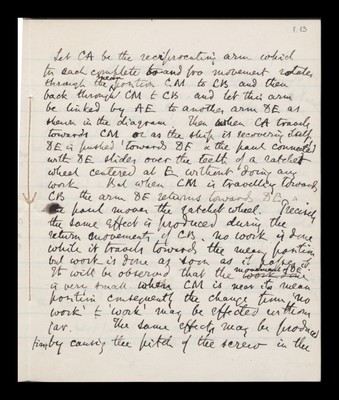 1.13
Let CA be the reciprocating arm which
in each complete to and fro movement rotates
through the mean position CM to CB and then
back through CM to CB and let this arm
be linked by AE to another arm DE as
shewn in the diagram. Then when CA travels
towards CM or as the ship is recovering itself
DE is pushed towards DE the paul connected
with DE slides over the teeth of a ratchet
wheel centered at E without doing any
work But when CM is travelling towards
CB the arm DE returns towards DE
the paul moves the ratchet wheel. Precisely
the same effect is produced during the
return movement of CB. no work is done
while it travels towards the mean position
but work is done as soon as it passes it.
It will be observed that the movement of DE
is very small when CM is near its mean
position consequently the change from 'no
work' to 'work' may be effected without
jar. The same effect may be produced
by causing the pitch of the screw in the